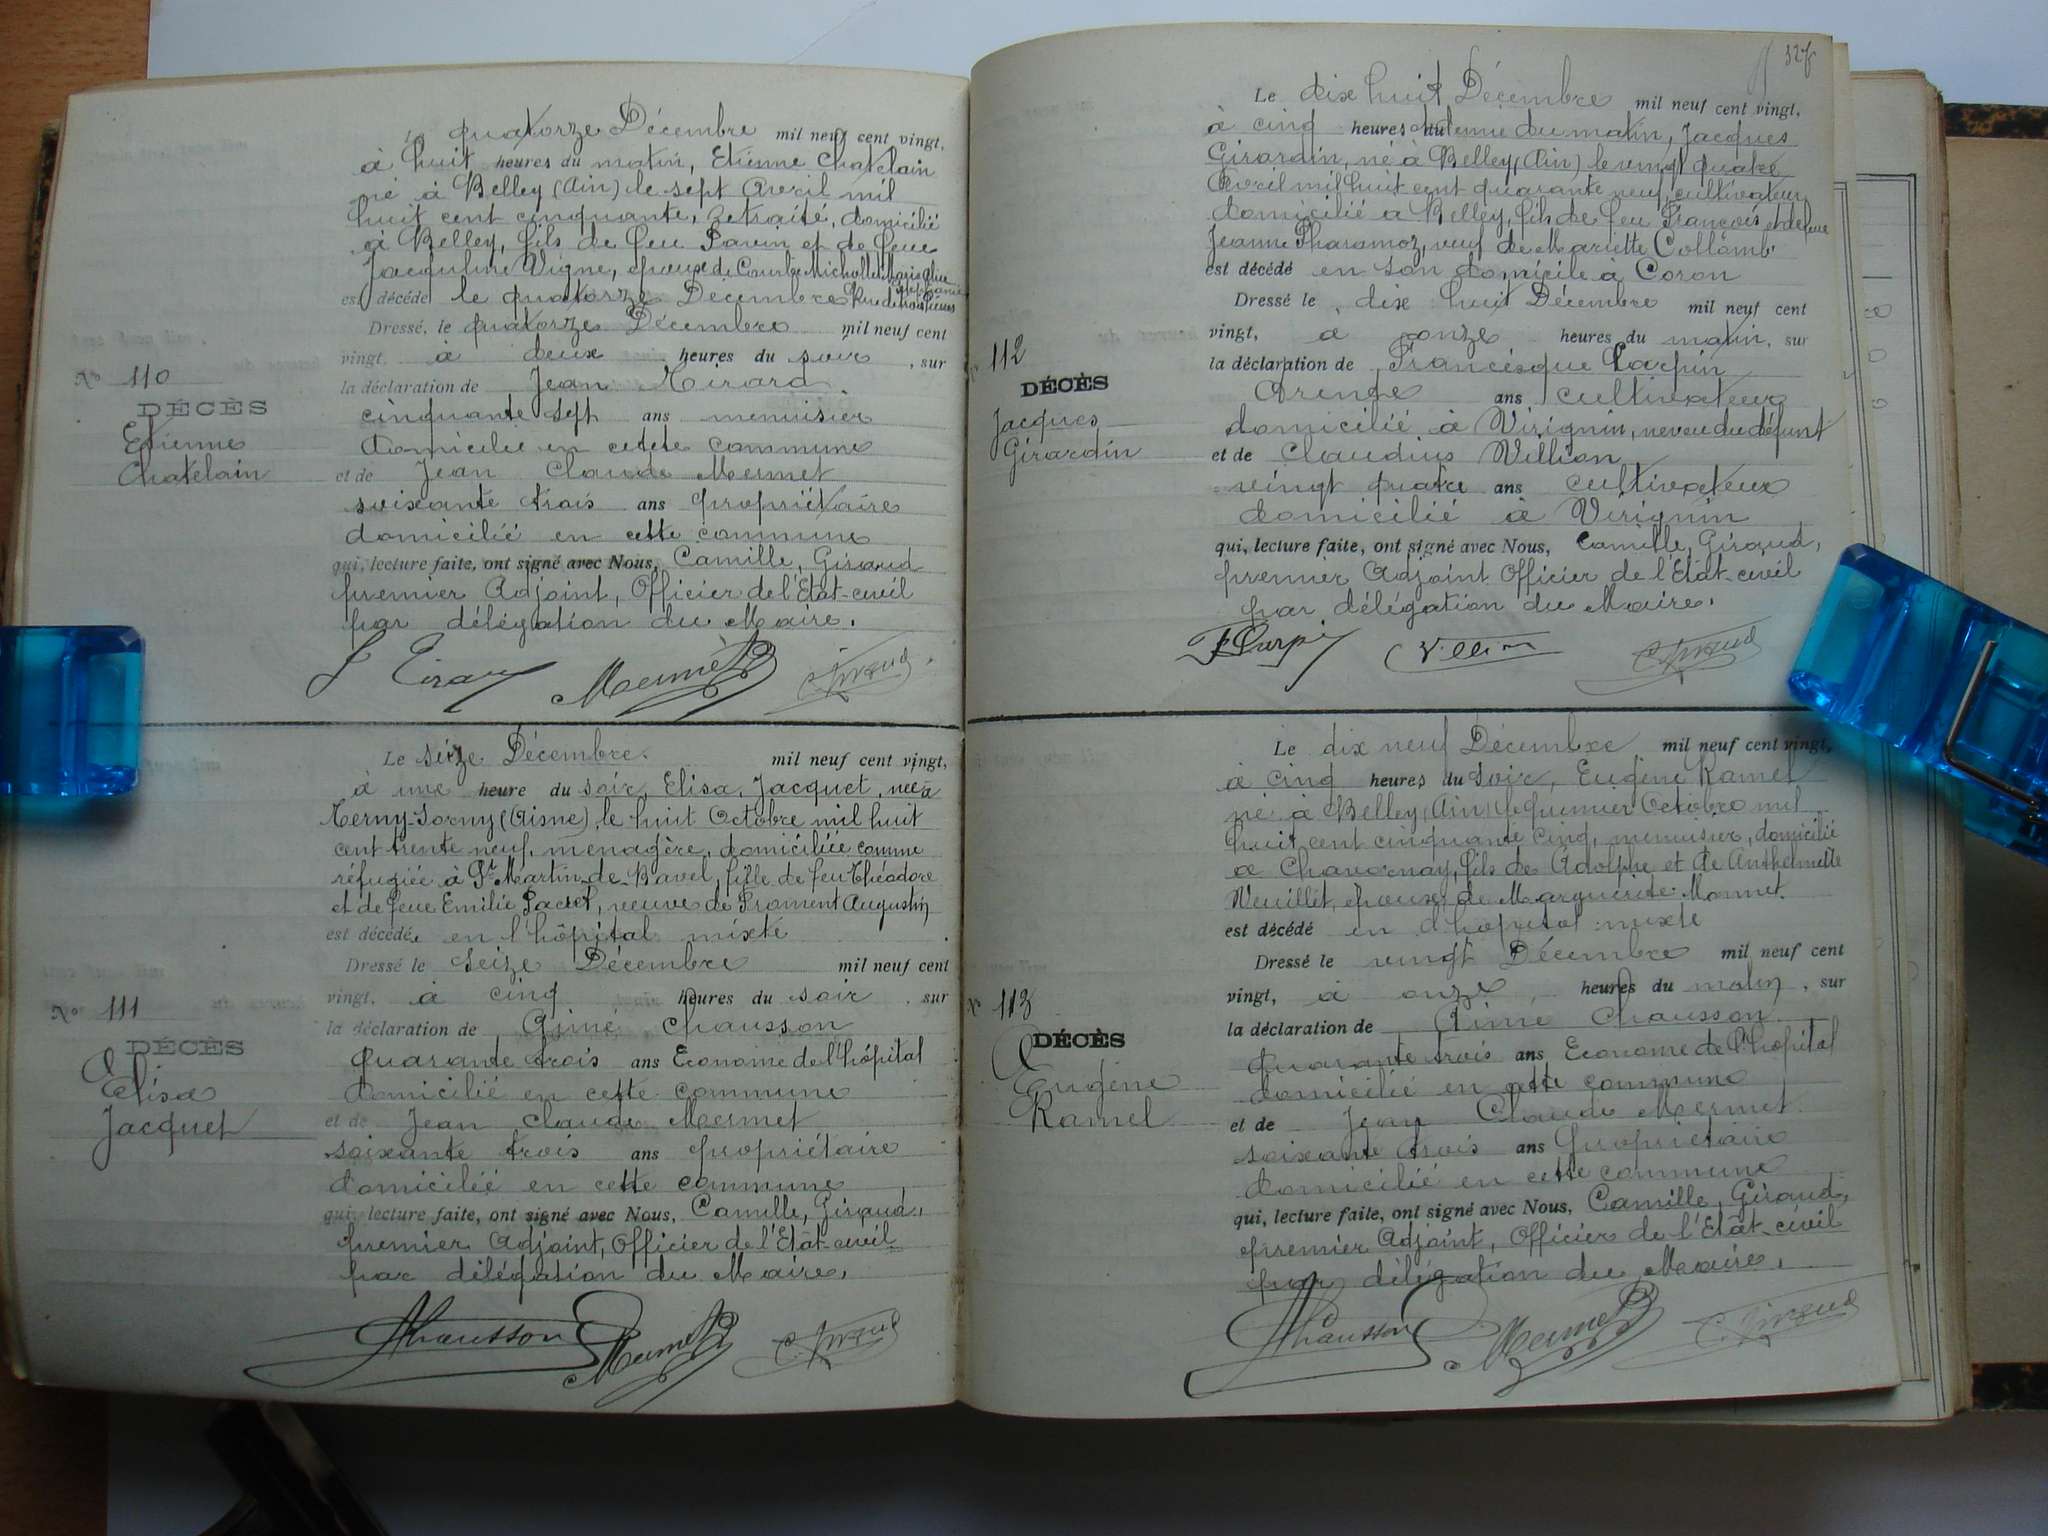 Le quatorze Décembre mil neuf cent vingt,
à huit heures du matin, Etienne Chatelain
né à Belley (Ain) le sept Avril mil
huit cent cinquante, retraité, domicilié
à Belley, fils de feu Pavin et de feue
Jacquline Vigne, époux de Courbe Michollet Marie Alice
est décédé le quatorze Décembre Rue de
Dressé, le quatorze Décembre mil neuf cent
vingt, à deux heures du soir, sur
la déclaration de Jean
cinquante sept ans menuisier
domicilié en cette commune
et de Jean Claude Mermet
soixante trois ans propriétaire
domicilié en cette commune
qui, lecture faite, ont signé avec Nous, Camille, Giraud
premier Adjoint, Officier de l'Etat-civil
par délégation du Maire.
Mermet C. Giraud
No 110
DÉCÈS
Etienne
Chatelain
Le seize Décembre. mil neuf cent vingt,
à une heure du soir, Elisa, Jacquet, née à
Terny-Sorny (Aisne), le huit Octobre mil huit
cent trente neuf, menagère, domiciliée comme
réfugiée à St Martin-de-Bavel, fille de feu Théodore
et de feue Emilie, veuve de Froment Augustin
est décédée en l'hôpital mixte
Dressé le seize Décembre mil neuf cent
vingt, à cinq heures du soir, sur
la déclaration de Aimé Chausson
quarante trois ans Econome de l'hôpital
domicilié en cette commune
et de Jean Claude Mermet
soixante trois ans propriétaire
domicilié en cette commune
qui, lecture faite, ont signé avec Nous, Camille, Giraud,
premier Adjoint, Officier de l'Etat-civil
par délégation du Maire.
AChausson Mermet C. Giraud
No 111
DÉCÈS
Elisa
Jacquet
Le dix huit Décembre mil neuf cent vingt,
à cinq heures demie du matin, Jacques
Girardin, né à Belley, (Ain) le vingt quatre
Avril mil huit cent quarante neuf, cultivateur,
domicilié à Belley, fils de feu François et de feue
Jeanne Pharamoz, veuf de Mariette Collomb
est décédé en son domicile à Coron
Dressé le dix huit Décembre mil neuf cent
vingt, à onze heures du matin, sur
la déclaration de Francisque Carpin
trente ans cultivateur
domicilié à Virignin, neveu du défunt
et de Claudius Villion
vingt quatre ans cultivateur
domicilié à Virignin
qui, lecture faite, ont signé avec Nous, Camille, Giraud,
premier Adjoint Officier de l'Etat-civil
par délégation du Maire.
Villion C. Giraud
112
DÉCÈS
Jacques
Girardin
Le dix neuf Décembre mil neuf cent vingt,
à cinq heures du soir, Eugène Ramel
né à Belley, (Ain) le premier Octobre mil
huit cent cinquante cinq, menuisier, domicilié
à Chavornay, fils de Adolphe et de Anthelmette
Veuillet, époux de Marguerite Monnet.
est décédé en l'hôpital mixte
Dressé le vingt Décembre mil neuf cent
vingt, à onze heures du matin, sur
la déclaration de Aimé Chausson
quarante trois ans Econome de l'hôpital
domicilié en cette commune
et de Jean Claude Mermet
soixante trois ans propriétaire
domicilié en cette commune
qui, lecture faite, ont signé avec Nous, Camille, Giraud,
premier Adjoint, Officier de l'Etat-civil
par délégation du Maire.
AChausson Mermet C. Giraud
No 113
DÉCÈS
Eugène
Ramel